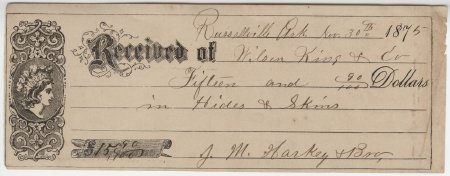 Russellville Ark Nov. 30th 1875
Received of Wilson King & Co
Fifteen and 90/100 Dollars
in Hides & Skins
$15 90/100 J. M. Harkey & Bro,